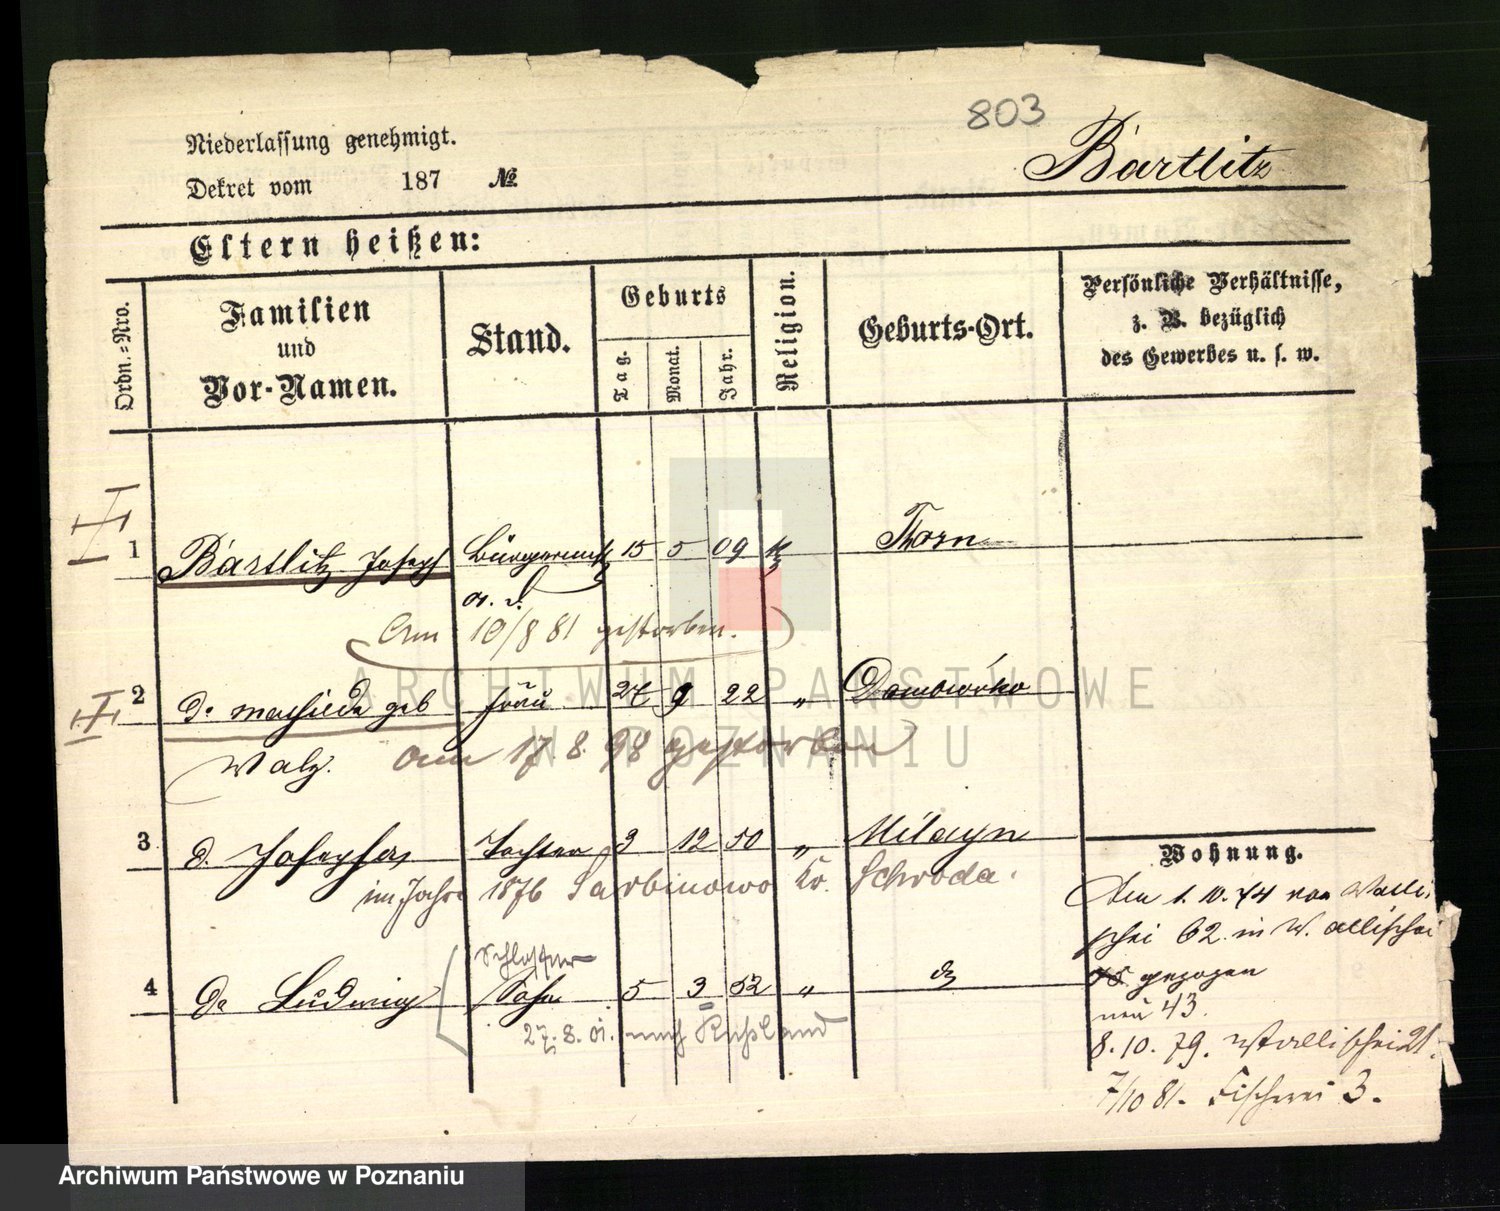 803
Niederlassung genehmigt.
Bartlitz
Dekret vom 187 №
Eltern heißen:
Ordn.-Nro.
Familien und Vor-Namen.
Stand.
Geburts
Tag.
Monat.
Jahr.
Religion.
Geburts-Ort.
Persönliche Verhältnisse,
z. B. bezüglich
des Gewerbes u. s. w.
1 Bartlitz Joseph 15 5 09 Thorn
a. d.
Am 10/8 81 gestorben.
2 do geb Frau 24 9 22 "
Walz. am 17. 8. 98 gestorben
3 d. Josepha Tochter 3 12 50 "
im Jahre 1876 Sarbinowo Kr. Schroda.
Schlosser
4 do Ludwig Sohn 5 3 52 " do
27. 8. 01. nach Rußland
Wohnung.
Am 1. 10. 74 von Walli
schei 62 in Wallischei
75 gezogen
neu 43.
8. 10. 79. Wallischei 21.
7/10 81. Fischerei 3.
ARCHIWUM PAŃSTWOWE
W POZNANIU
Archiwum Państwowe w Poznaniu